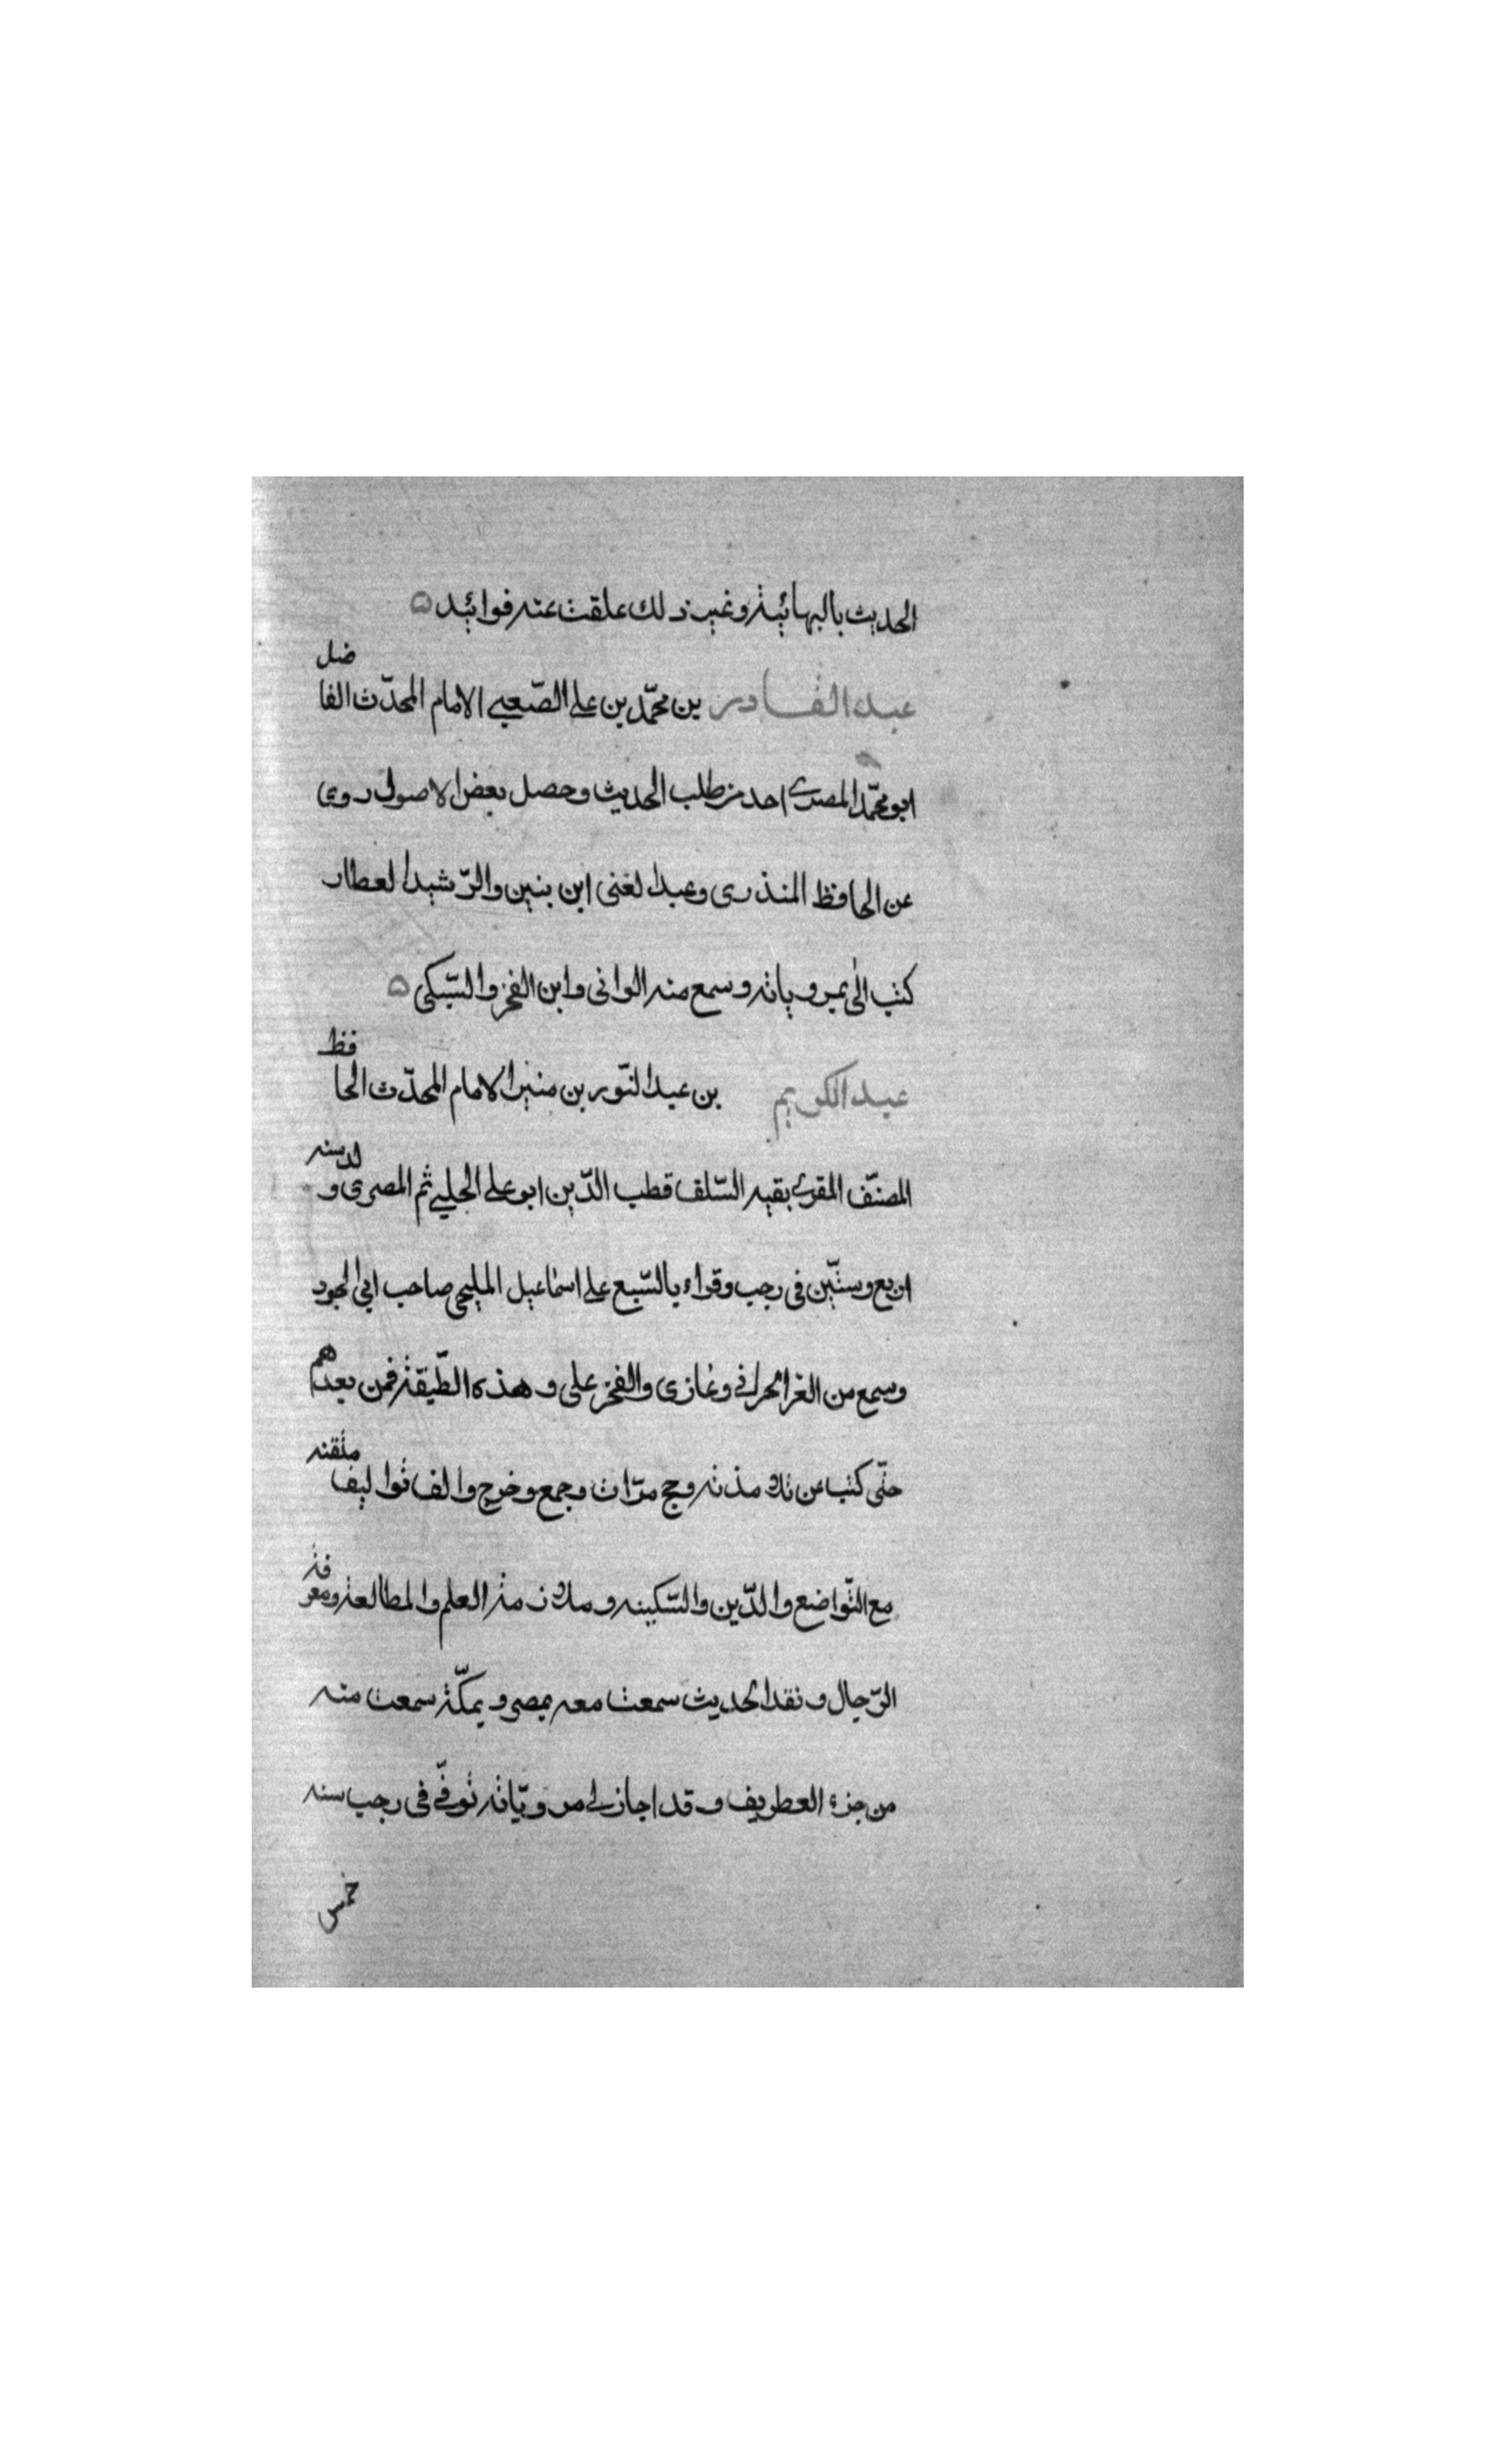 الحديث بالبهائية وغير ذلك علقت عنه فوائد ه
عبد القادر بن محمّد بن على الصّعبي الامام المحدّث الفاضل
ابو محمّد المصرى احد من طلب الحديث وحصل بعض الاصول روى
عن الحافظ المنذرى وعبد الغنى ابن بنين والرّشيد العطار
كتب الىّ بمروياته وسمع منه الوانى وابن الفخر والسّبكى ه
عبد الكريم بن عبد النّور بن منير الامام المحدّث الحافظ
المصنّف المقرى بقيه السّلف قطب الدّين ابو على الحلبي ثم المصرى ولد سنه
اربع وستّين فى رجب وقراء بالسّبع على اسماعيل المليجى صاحب ابى الجود
وسمع من العز الحرانى وغازى والفخر على وهذه الطّبقة فمن بعدهم
حتّى كتب عن تلامذته وحج مرّات وجمع وخرج والف تواليف متقنه
مع التّواضع والدّين والسّكينه وملازمة العلم والمطالعة ومعرفة
الرّجال ونقد الحديث سمعت معه بمصر وبمكّة سمعت منه
من جزء العطريف وقد اجاز لى مرويّاته توفّى فى رجب سنه
خمس